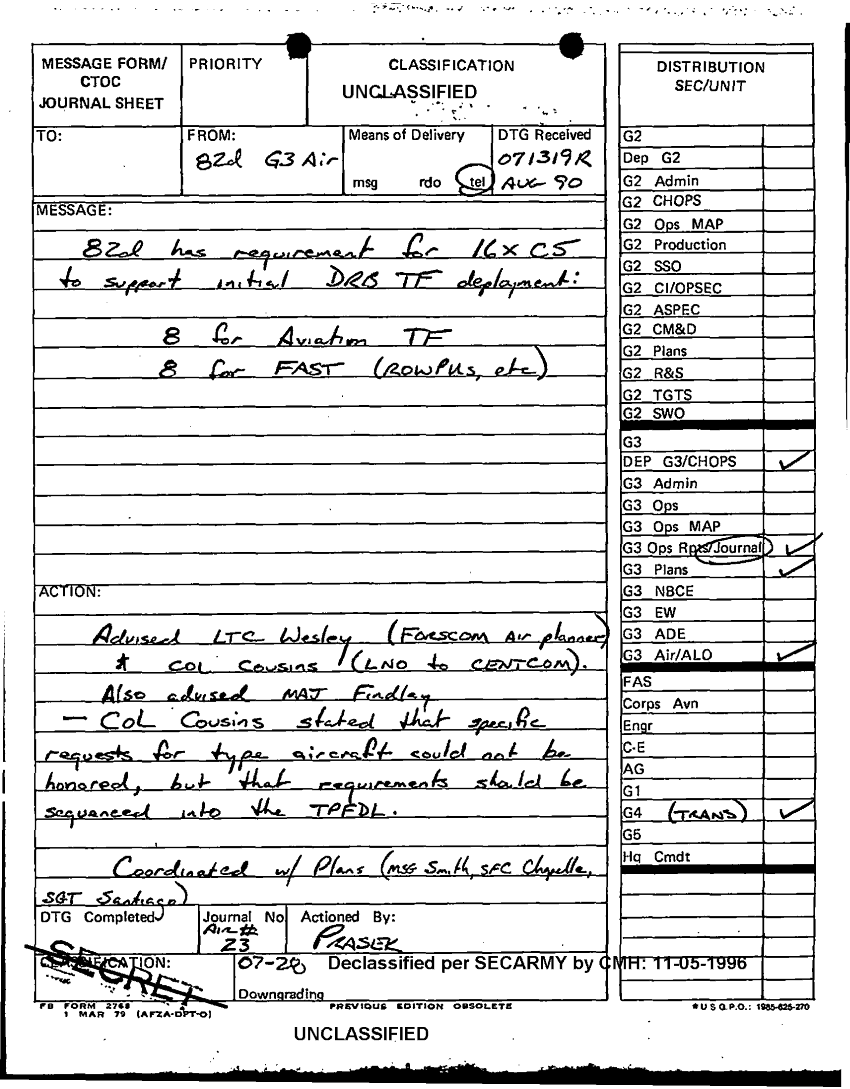 MESSAGE FORM/
CTOC
JOURNAL SHEET
PRIORITY
CLASSIFICATION
UNCLASSIFIED
TO:
FROM:
82d G3 Air
Means of Delivery
msg rdo tel
DTG Received
071319R
AUG 90
MESSAGE:
82d has requirement for 16x C5
to support initial DRB TF deployment:
8 for Aviation TF
8 for FAST (ROWPUs, etc)
ACTION:
Advised LTC Wesley (FORSCOM Air planner)
* COL Cousins (LNO to CENTCOM).
Also advised MAJ Findlay
— COL Cousins stated that specific
requests for type aircraft could not be
honored, but that requirements should be
sequenced into the TPFDL.
Coordinated w/ Plans (MSG Smith, SFC Chapelle,
SGT Santiago)
DTG Completed
Journal No
Air #
23
Actioned By:
PRASEK
CLASSIFICATION:
SECRET
07-28
Declassified per SECARMY by CMH: 11-05-1996
Downgrading
FB FORM 2768
1 MAR 79 (AFZA-DPT-O)
PREVIOUS EDITION OBSOLETE
*U S G.P.O.: 1985-625-270
UNCLASSIFIED
DISTRIBUTION
SEC/UNIT
G2
Dep G2
G2 Admin
G2 CHOPS
G2 Ops MAP
G2 Production
G2 SSO
G2 CI/OPSEC
G2 ASPEC
G2 CM&D
G2 Plans
G2 R&S
G2 TGTS
G2 SWO
G3
DEP G3/CHOPS ✓
G3 Admin
G3 Ops
G3 Ops MAP
G3 Ops Rpts/Journal ✓
G3 Plans ✓
G3 NBCE
G3 EW
G3 ADE
G3 Air/ALO ✓
FAS
Corps Avn
Engr
C-E
AG
G1
G4 (TRANS) ✓
G5
Hq Cmdt